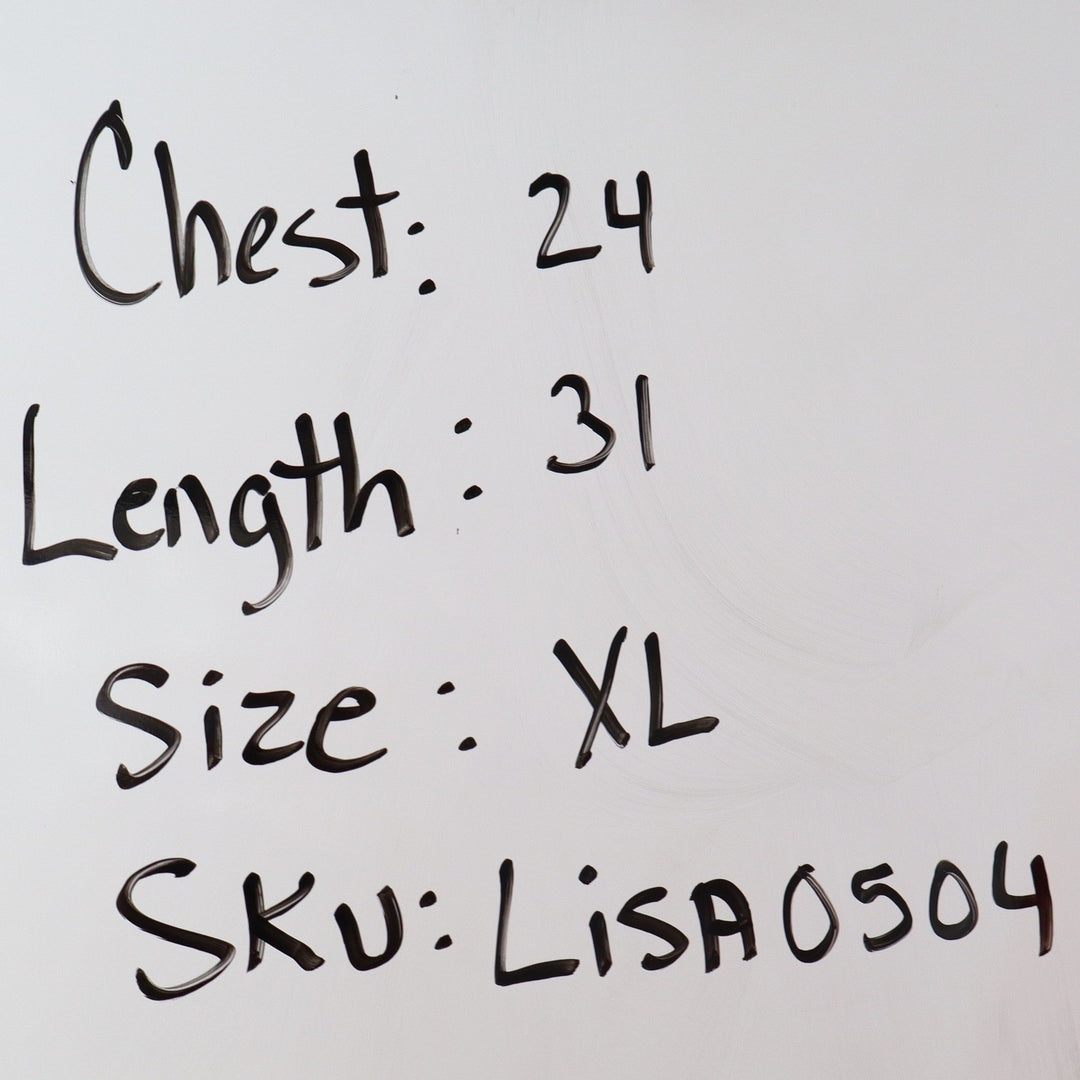 Chest: 24
Length: 31
Size: XL
SKU: LiSA0504